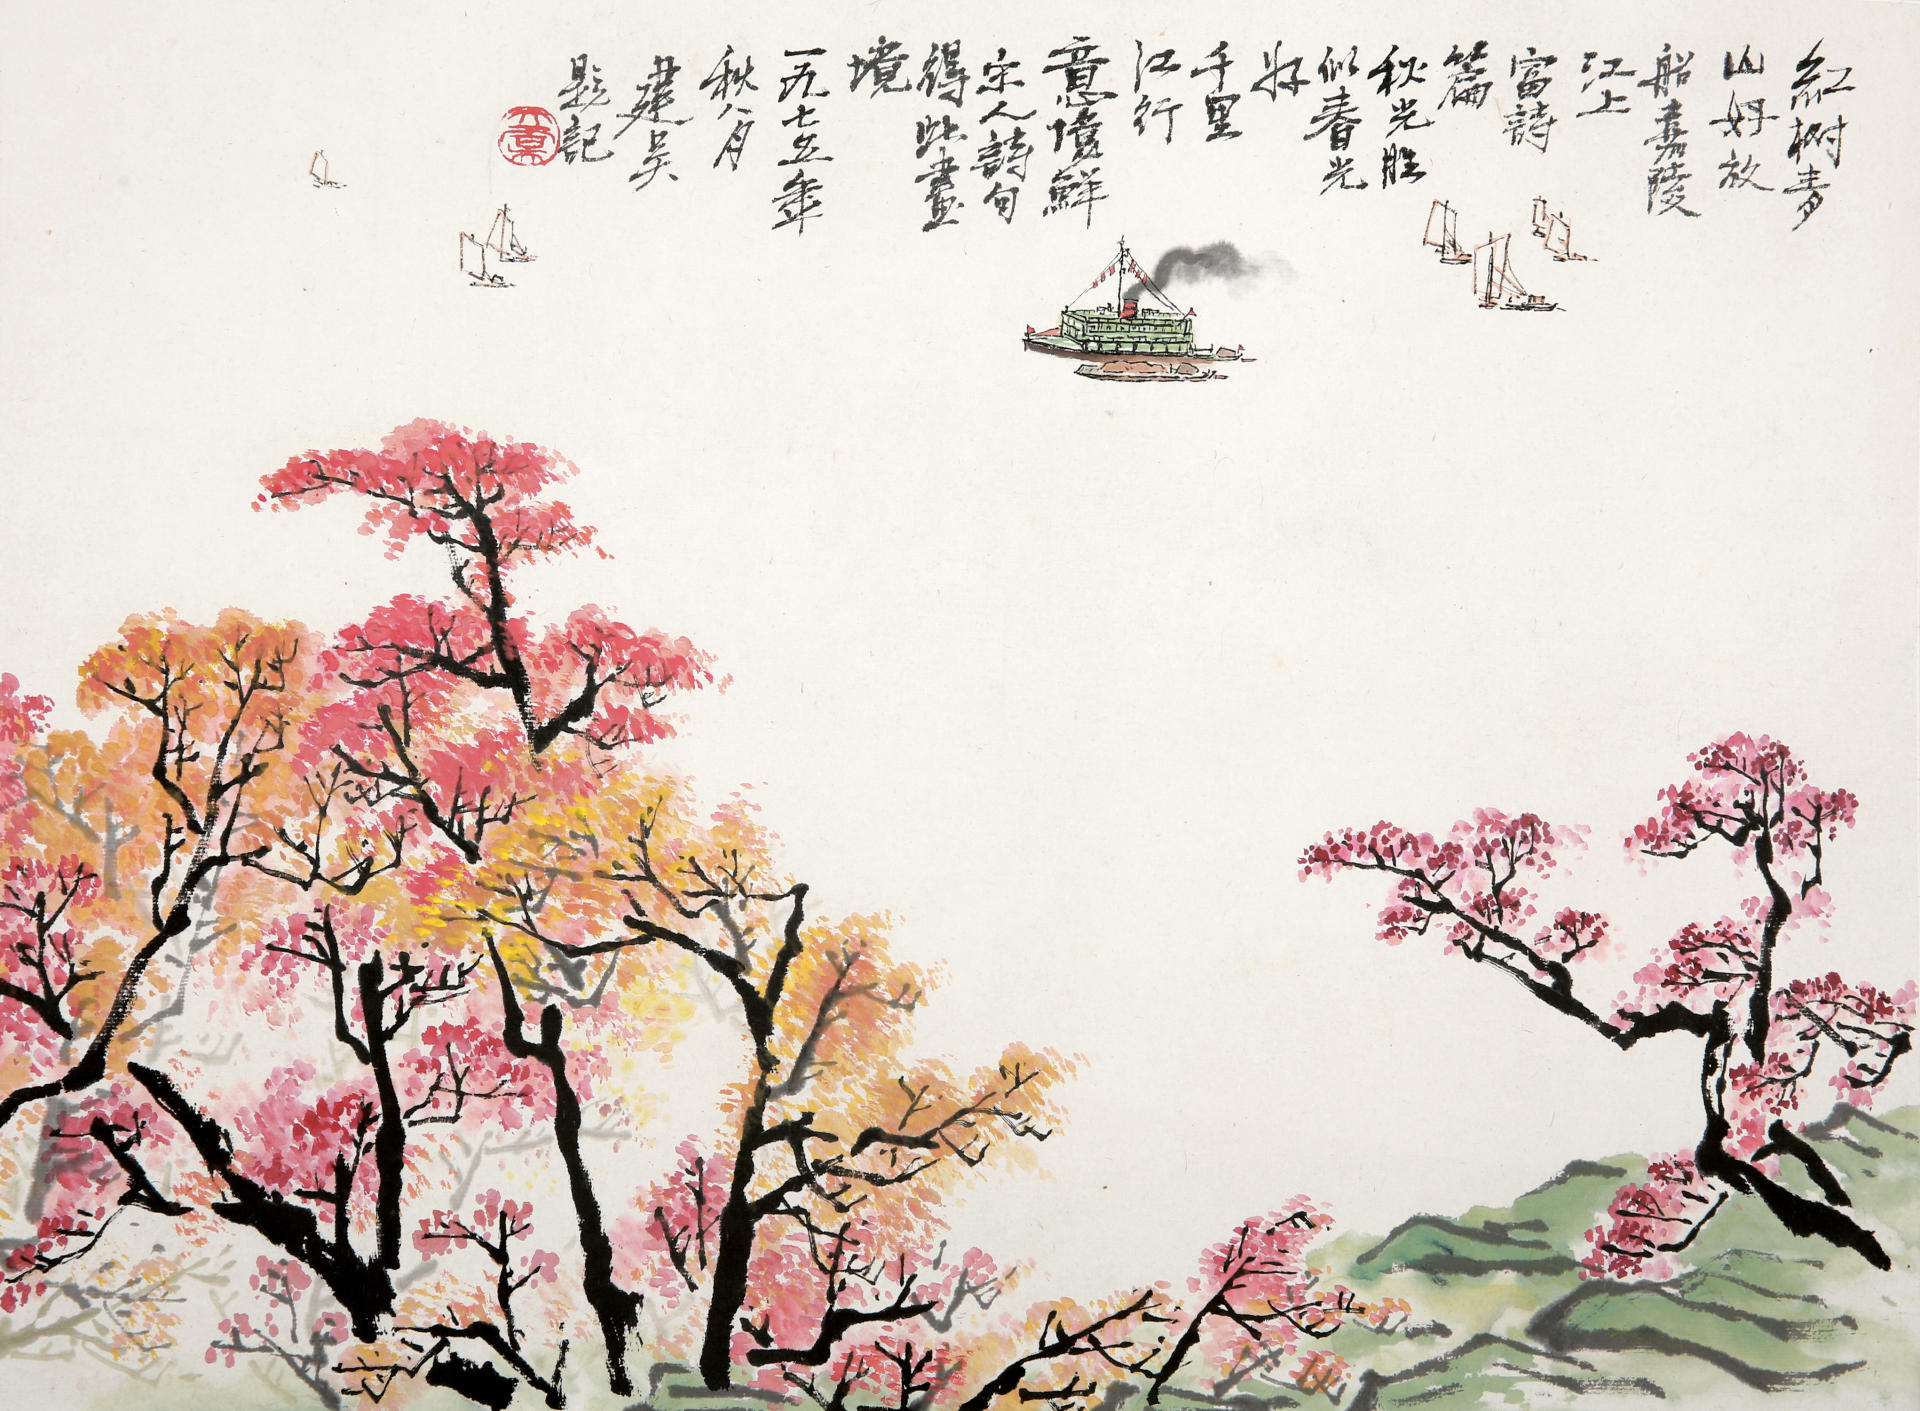 紅树青
山好放
船嘉陵
江上
富詩
篇
秋光胜
似春光
好
千里
江行
意境鮮
宋人詩句
得此畫
境
一九七五年
秋八月
建吴
題記